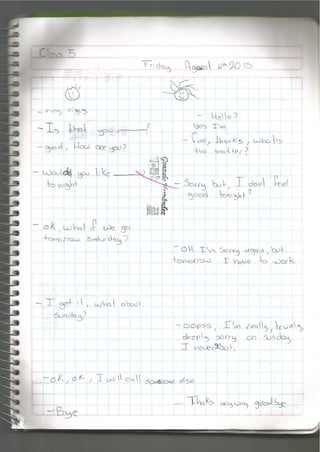 Clas 5
Friday August 16th 2013
- ring rings
- Hello?
- Is that you ?
yes I'm
- good, How are you?
- fine, thanks, what is
the matter?
- would you like
to night
- Sorry but, I don't feel
good tonight
- ok, what if we go
tomorrow Saturday?
- OH, I'm sorry again, but
tomorrow I have to work
- I get it, what about
Sunday?
- oopss, I'm really, truely,
deeply sorry on Sunday
I never out.
- ok, ok, I will call someone else
- Thaks anyway goodbye
- Bye